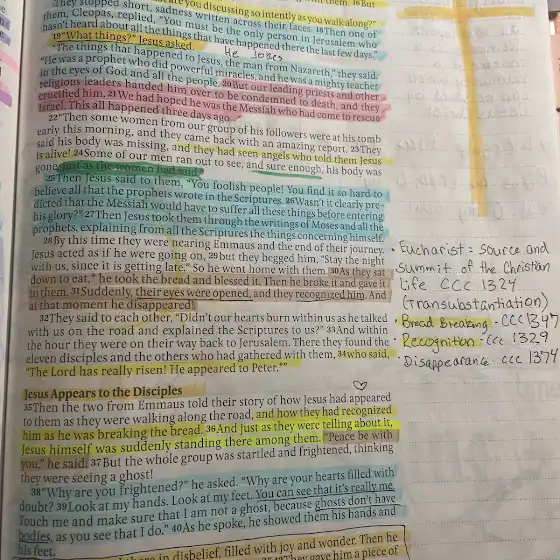 are you discussing so intently as you walk along?"
They stopped short, sadness written across their faces. 18Then one of
them, Cleopas, replied, "You must be the only person in Jerusalem who
hasn't heard about all the things that have happened there the last few days."
19"What things?" Jesus asked.
He Jokes
"The things that happened to Jesus, the man from Nazareth," they said.
"He was a prophet who did powerful miracles, and he was a mighty teacher
in the eyes of God and all the people. 20But our leading priests and other
religious leaders handed him over to be condemned to death, and they
crucified him. 21We had hoped he was the Messiah who had come to rescue
Israel. This all happened three days ago.
22"Then some women from our group of his followers were at his tomb
early this morning, and they came back with an amazing report. 23They
said his body was missing, and they had seen angels who told them Jesus
is alive! 24Some of our men ran out to see, and sure enough, his body was
gone, just as the women had said."
25Then Jesus said to them, "You foolish people! You find it so hard to
believe all that the prophets wrote in the Scriptures. 26Wasn't it clearly pre-
dicted that the Messiah would have to suffer all these things before entering
his glory?" 27Then Jesus took them through the writings of Moses and all the
prophets, explaining from all the Scriptures the things concerning himself.
28By this time they were nearing Emmaus and the end of their journey.
Jesus acted as if he were going on, 29but they begged him, "Stay the night
with us, since it is getting late." So he went home with them. 30As they sat
down to eat,* he took the bread and blessed it. Then he broke it and gave it
to them. 31Suddenly, their eyes were opened, and they recognized him. And
at that moment he disappeared!
32They said to each other, "Didn't our hearts burn within us as he talked
with us on the road and explained the Scriptures to us?" 33And within
the hour they were on their way back to Jerusalem. There they found the
eleven disciples and the others who had gathered with them, 34who said,
"The Lord has really risen! He appeared to Peter.*"
Jesus Appears to the Disciples
35Then the two from Emmaus told their story of how Jesus had appeared
to them as they were walking along the road, and how they had recognized
him as he was breaking the bread. 36And just as they were telling about it,
Jesus himself was suddenly standing there among them. "Peace be with
you," he said. 37But the whole group was startled and frightened, thinking
they were seeing a ghost!
38"Why are you frightened?" he asked. "Why are your hearts filled with
doubt? 39Look at my hands. Look at my feet. You can see that it's really me.
Touch me and make sure that I am not a ghost, because ghosts don't have
bodies, as you see that I do." 40As he spoke, he showed them his hands and
his feet.
in disbelief, filled with joy and wonder. Then he
They gave him a piece of
• Eucharist = source and
summit of the Christian
life CCC 1324
(transubstantiation)
• Bread Breaking - CCC 1347
• Recognition - CCC 1329
• Disappearance .. CCC 1374